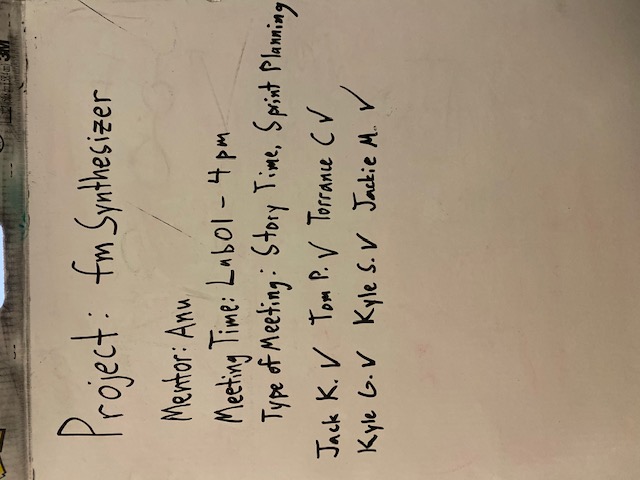 3M
Project: fm Synthesizer
Mentor: Anu
Meeting Time: Lab01 - 4 pm
Type of Meeting: Story Time, Sprint Planning
Jack K. ✓ Tom P. ✓ Torrance C ✓
Kyle G. ✓ Kyle S. ✓ Jackie M. ✓